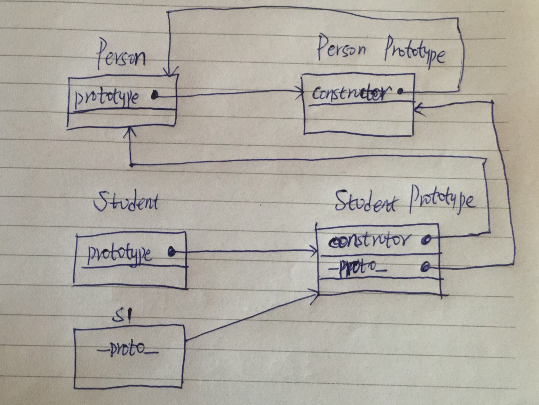 Person
Person Prototype
prototype
constructor
Student
Student Prototype
prototype
constrotor
_proto_
S1
_proto_